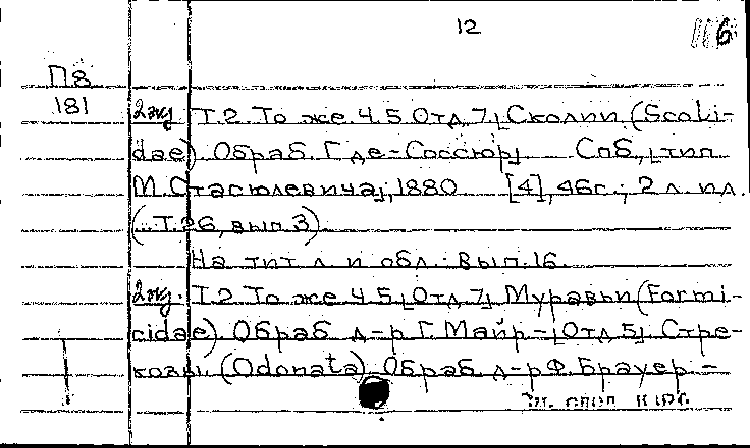 12
6
П8
181
2экз. Т.2. То же. Ч.5. Отд. 7. [Сколии (Scoli-
dae). Обраб. Г. де-Соссюр] Спб., [тип.
М. Стасюлевича], 1880 [4], 46с.; 2 л. ил.
(...Т.26, вып.3).
На тит. л. и обл.: Вып. 16.
2экз. Т.2. То же. Ч.5. [Отд. 7]. Муравьи (Formi-
cidae). Обраб. д-р Г. Майр. - [Отд. 5]. Стре-
козы. (Odonata). Обраб. д-р Ф. Брауер. -